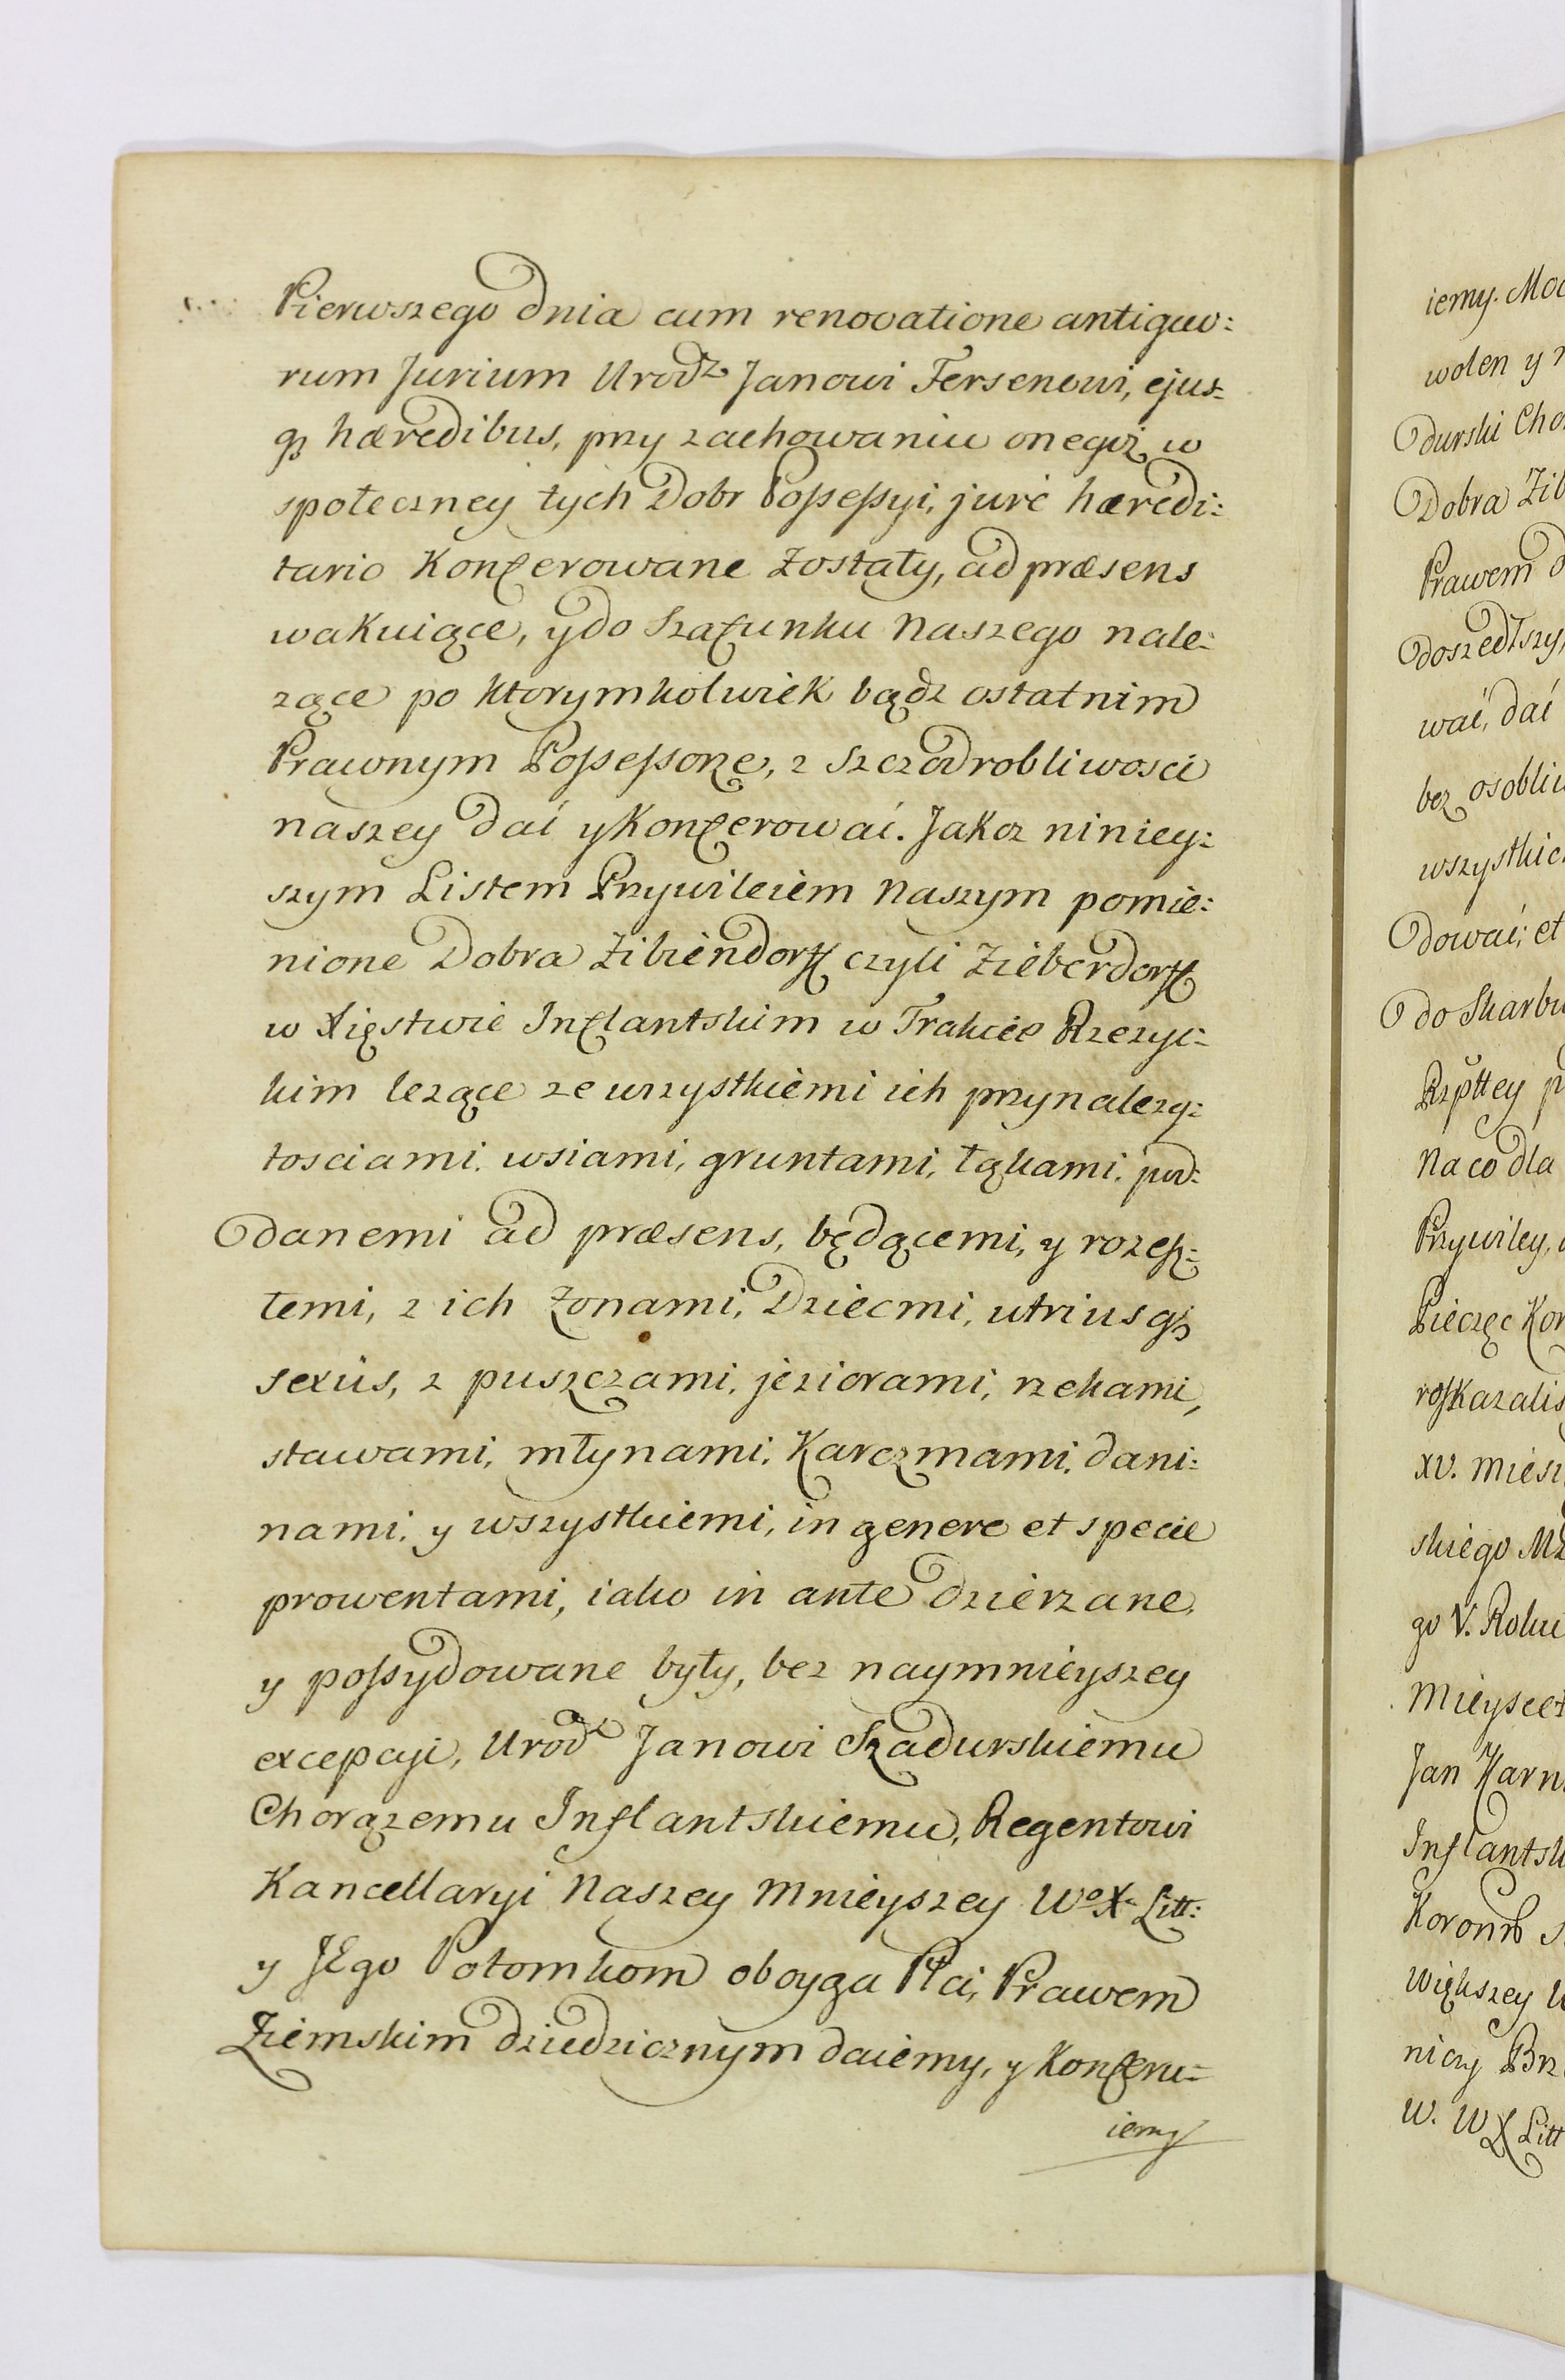 Pierwszego dnia cum renovatione antiquo:
rum Jurium Urodz Janowi Fersenowi, ejus:
qȝ hæredibus, przy zachowaniu onegoż w
społeczney tych Dobr Possessyi, jure hæredi:
tario Konferowane zostały, ad præsens
wakuiące, y do Szafunku Naszego nale:
zące po ktorymkolwiek bądz ostatnim
Prawnym Possessorze, z Szczodrobliwosci
naszey dać y Konferować. Jakoz niniey:
szym Listem Przywileiem Naszym pomie:
nione Dobra Zibiendorff czyli Zieberdorff
w Xięstwie Inflantskim w Trakcie Rzezyc:
kim lezące ze wszystkiemi ich przynalezy:
tosciami, wsiami, gruntami, łąkami, pod:
danemi ad præsens, będącemi, y rozesz:
łemi, z ich Zonami, Dziecmi, utriusqȝ
sexûs, z puszczami, jeziorami, rzekami,
stawami, młynami, Karczmami, dani:
nami, y wszystkiemi, in genere et specie
prowentami, iako in ante dzierzane,
y possydowane były, bez naymnieyszey
excepcyi, Urodz Janowi Szadurskiemu
Chorązemu Inflantskiemu, Regentowi
Kancellaryi Naszey Mnieyszey Wo Xa Litt:
y JEgo Potomkom oboyga Płci, Prawem
Ziemskim dziedzicznym daiemy, y Konferu:
iemy
iemy. Moc
wolen y
durski Cho
Dobra Zib
Prawem d
doszedłszy,
wać, dać
bez osobliw
wszystkie
dować; et
do Skarbu
Rzpttey p
Na co dla
Przywiley,
Pieczęc Kor
rosKazalis
XV. Miesi
skiego M
go V. Roku
Mieysce
Jan Karn
Inflantsk
Koronn S
większey W
niczy Brz
W. W X Litt